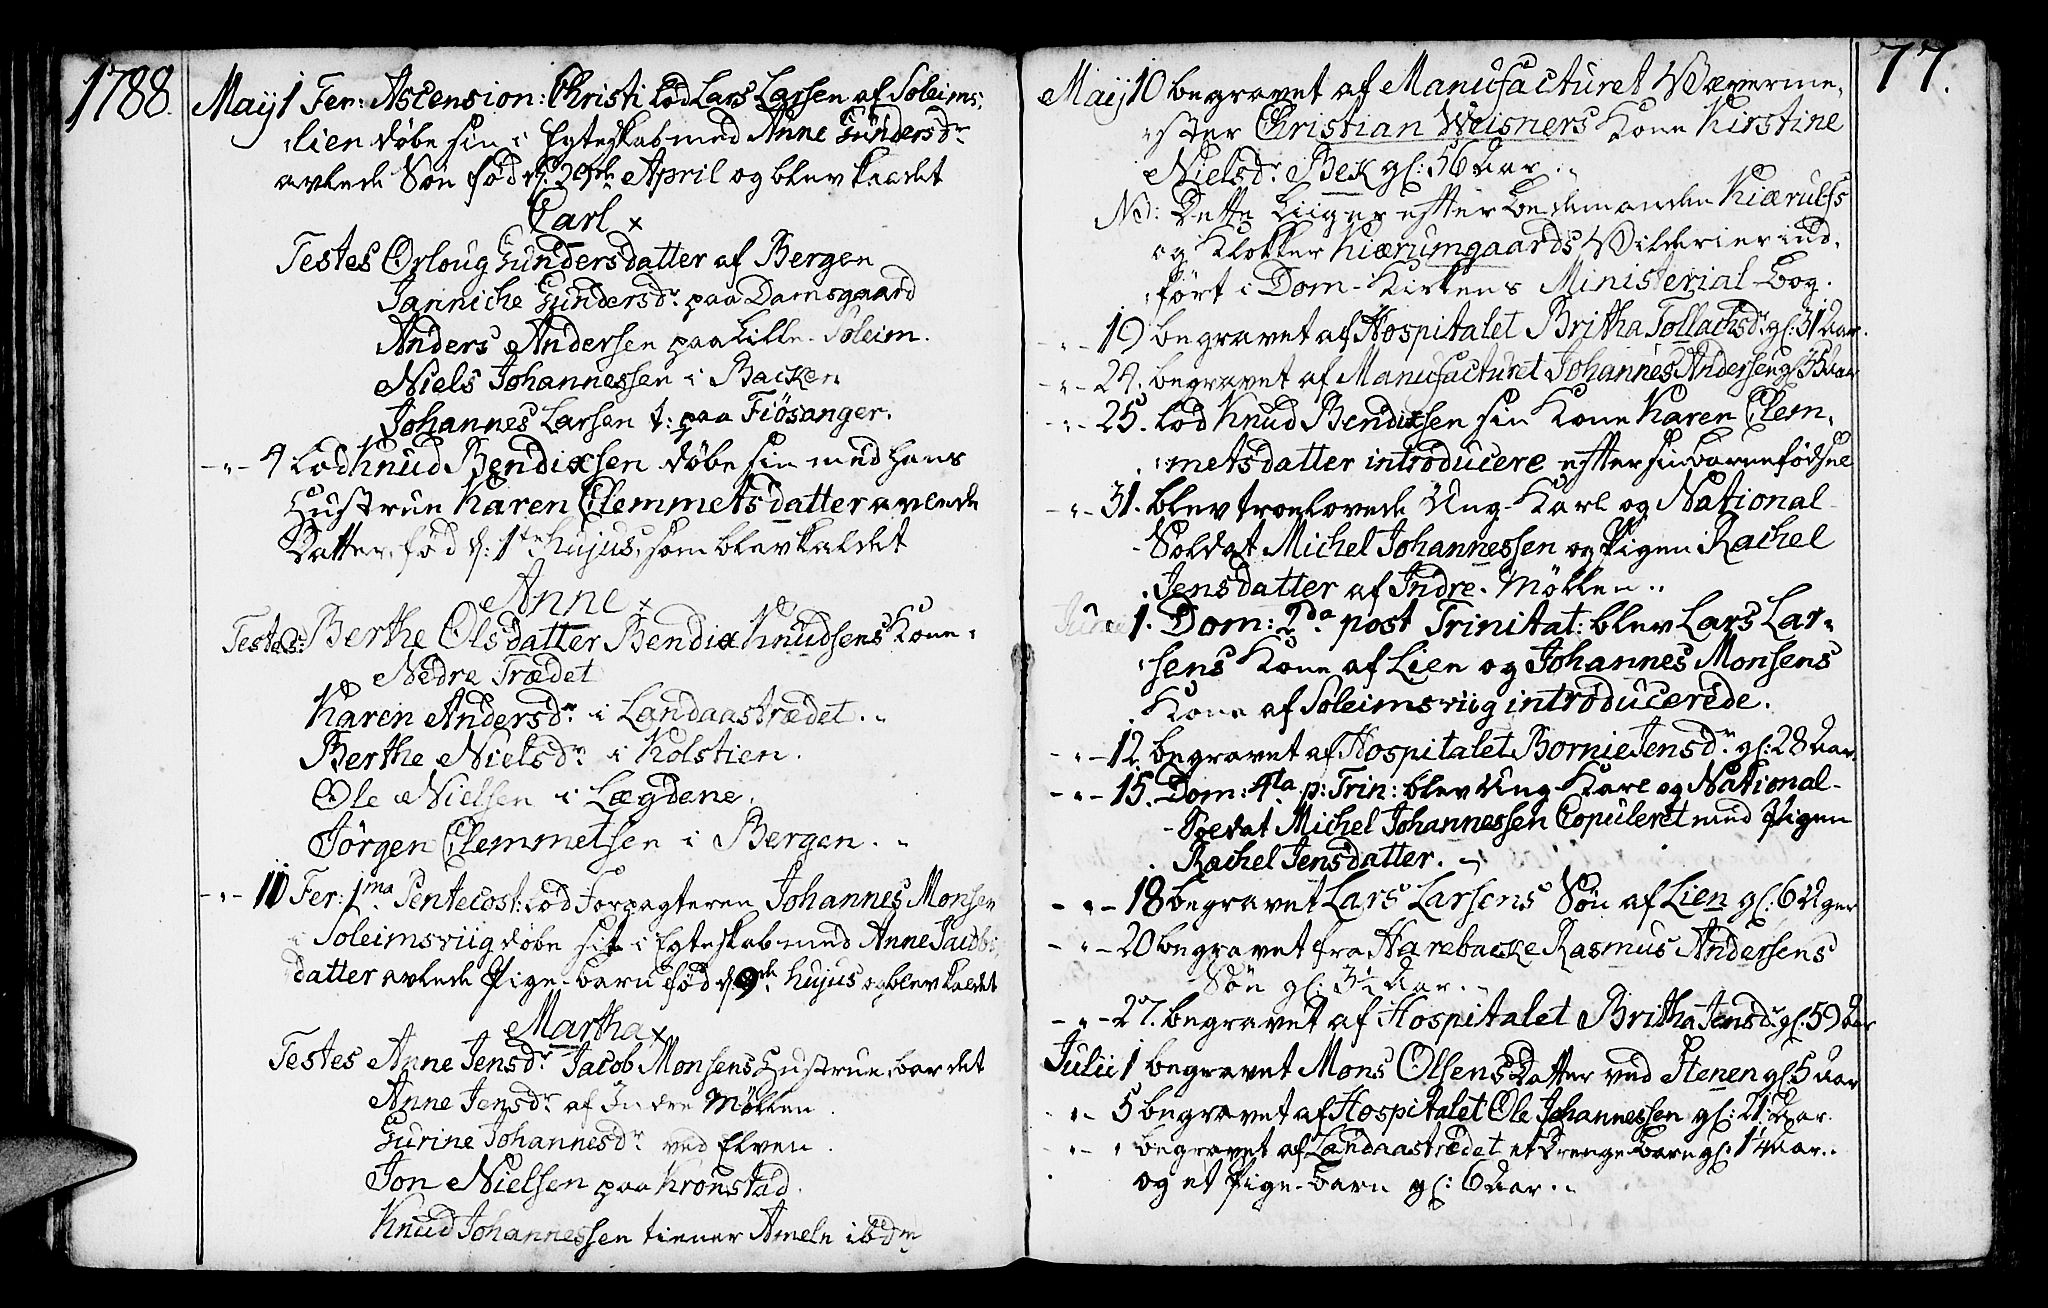 1788.
Maij 1 Fer: Ascension: Christi lod Lars Larsen af Soleims:
lien døbe sin i Egteskab med Anne Gundersdr
avlede Søn fød d: 29de April og blev kaldet
Carl ×
Testes Orloug Gundersdatter af Bergen
Janniche Gundersdr paa Damsgaard
Anders Andersen paa Lille-Soleim.
Niels Johannessen i Backen
Johannes Larsen t: paa Fiösanger.
-"- 4 Lod Knud Bendixsen døbe sin med hans
Hustrue Karen Clemmetsdatter avlede
Datter, fød d: 1te hujus, som blev kaldet
Anne ×
Testes: Berthe Olsdatter Bendix Knudsens Kone
Nedre Trædet
Karen Andersdr i Landaastrædet.
Berthe Nielsdr i Kolstien.
Ole Nielsen i Lægdene.
Jörgen Clemmetsen i Bergen.
-"- 11 Fer: 1ma Pentecost: lod Forpagteren Johannes Monsen
i Soleimsviig døbe sit i Egteskab med Anne Jacobs:
datter avlede Pige-barn fød d 9de hujus og blev kaldet
Martha ×
Testes Anne Jensdr Jacob Monsens Hustrue, bar det
Anne Jensdr af Indre Möllen.
Gurine Johannesdr ved Elven.
Jon Nielsen paa Kronstad.
Knud Johannessen tiener Ameln ibdm
77.
Maij 10 begravet af Manufacturet Væverme,
ster Christian Weisners Kone Kirstine
Nielsdr Bek gl: 56 Aar.
NB: Dette Liig er efter Bedemanden Kiærulfs
og Klokker Kiærumgaards Vilderier ind,
ført i Dom-Kirkens Ministerial-Bog.
-"- 19 begravet af Hospitalet Britha Tollachsdr gl: 31 Aar.
-"- 24. begravet af Manufacturet Johannes Andersen gl: 35 Aar
-"- 25. Lod Knud Bendixsen sin Kone Karen Clem,
metsdatter introducere efter sin Barnefødsel
-"- 31. blev troelovede Ung-Karl og National-
Soldat Michel Johannessen og Pigen Rachel
Jensdatter af Indre-Möllen.
Junii 1. Dom: 2da post Trinitat: blev Lars Lar,
sens Kone af Lien og Johannes Monsens
Kone af Soleimsviig introducerede.
-"- 12 begravet af Hospitalet Bornie Jensdr gl: 28 Aar.
-"- 15. Dom: 4ta p: Trin: blev Ung-Karl og National-
Soldat Michel Johannessen Copuleret med Pigen
Rachel Jensdatter.
-"- 18 begravet Lars Larsens Søn af Lien gl: 6 Uger
-"- 20 begravet fra Harebacke Rasmus Andersens
Søn gl: 3½ Aar.
-"- 27. begravet af Hospitalet Britha Jensdr gl: 59 Aar
Julii 1 begravet Mons Olsens Datter ved Stenen gl: 5 Aar
"- 5 begravet af Hospitalet Ole Johannessen gl: 21 Aar.
"- " begravet af Landaastrædet et Drenge-Barn gl: 1¼ Aar.
og et Pige-Barn gl: 6 Aar.